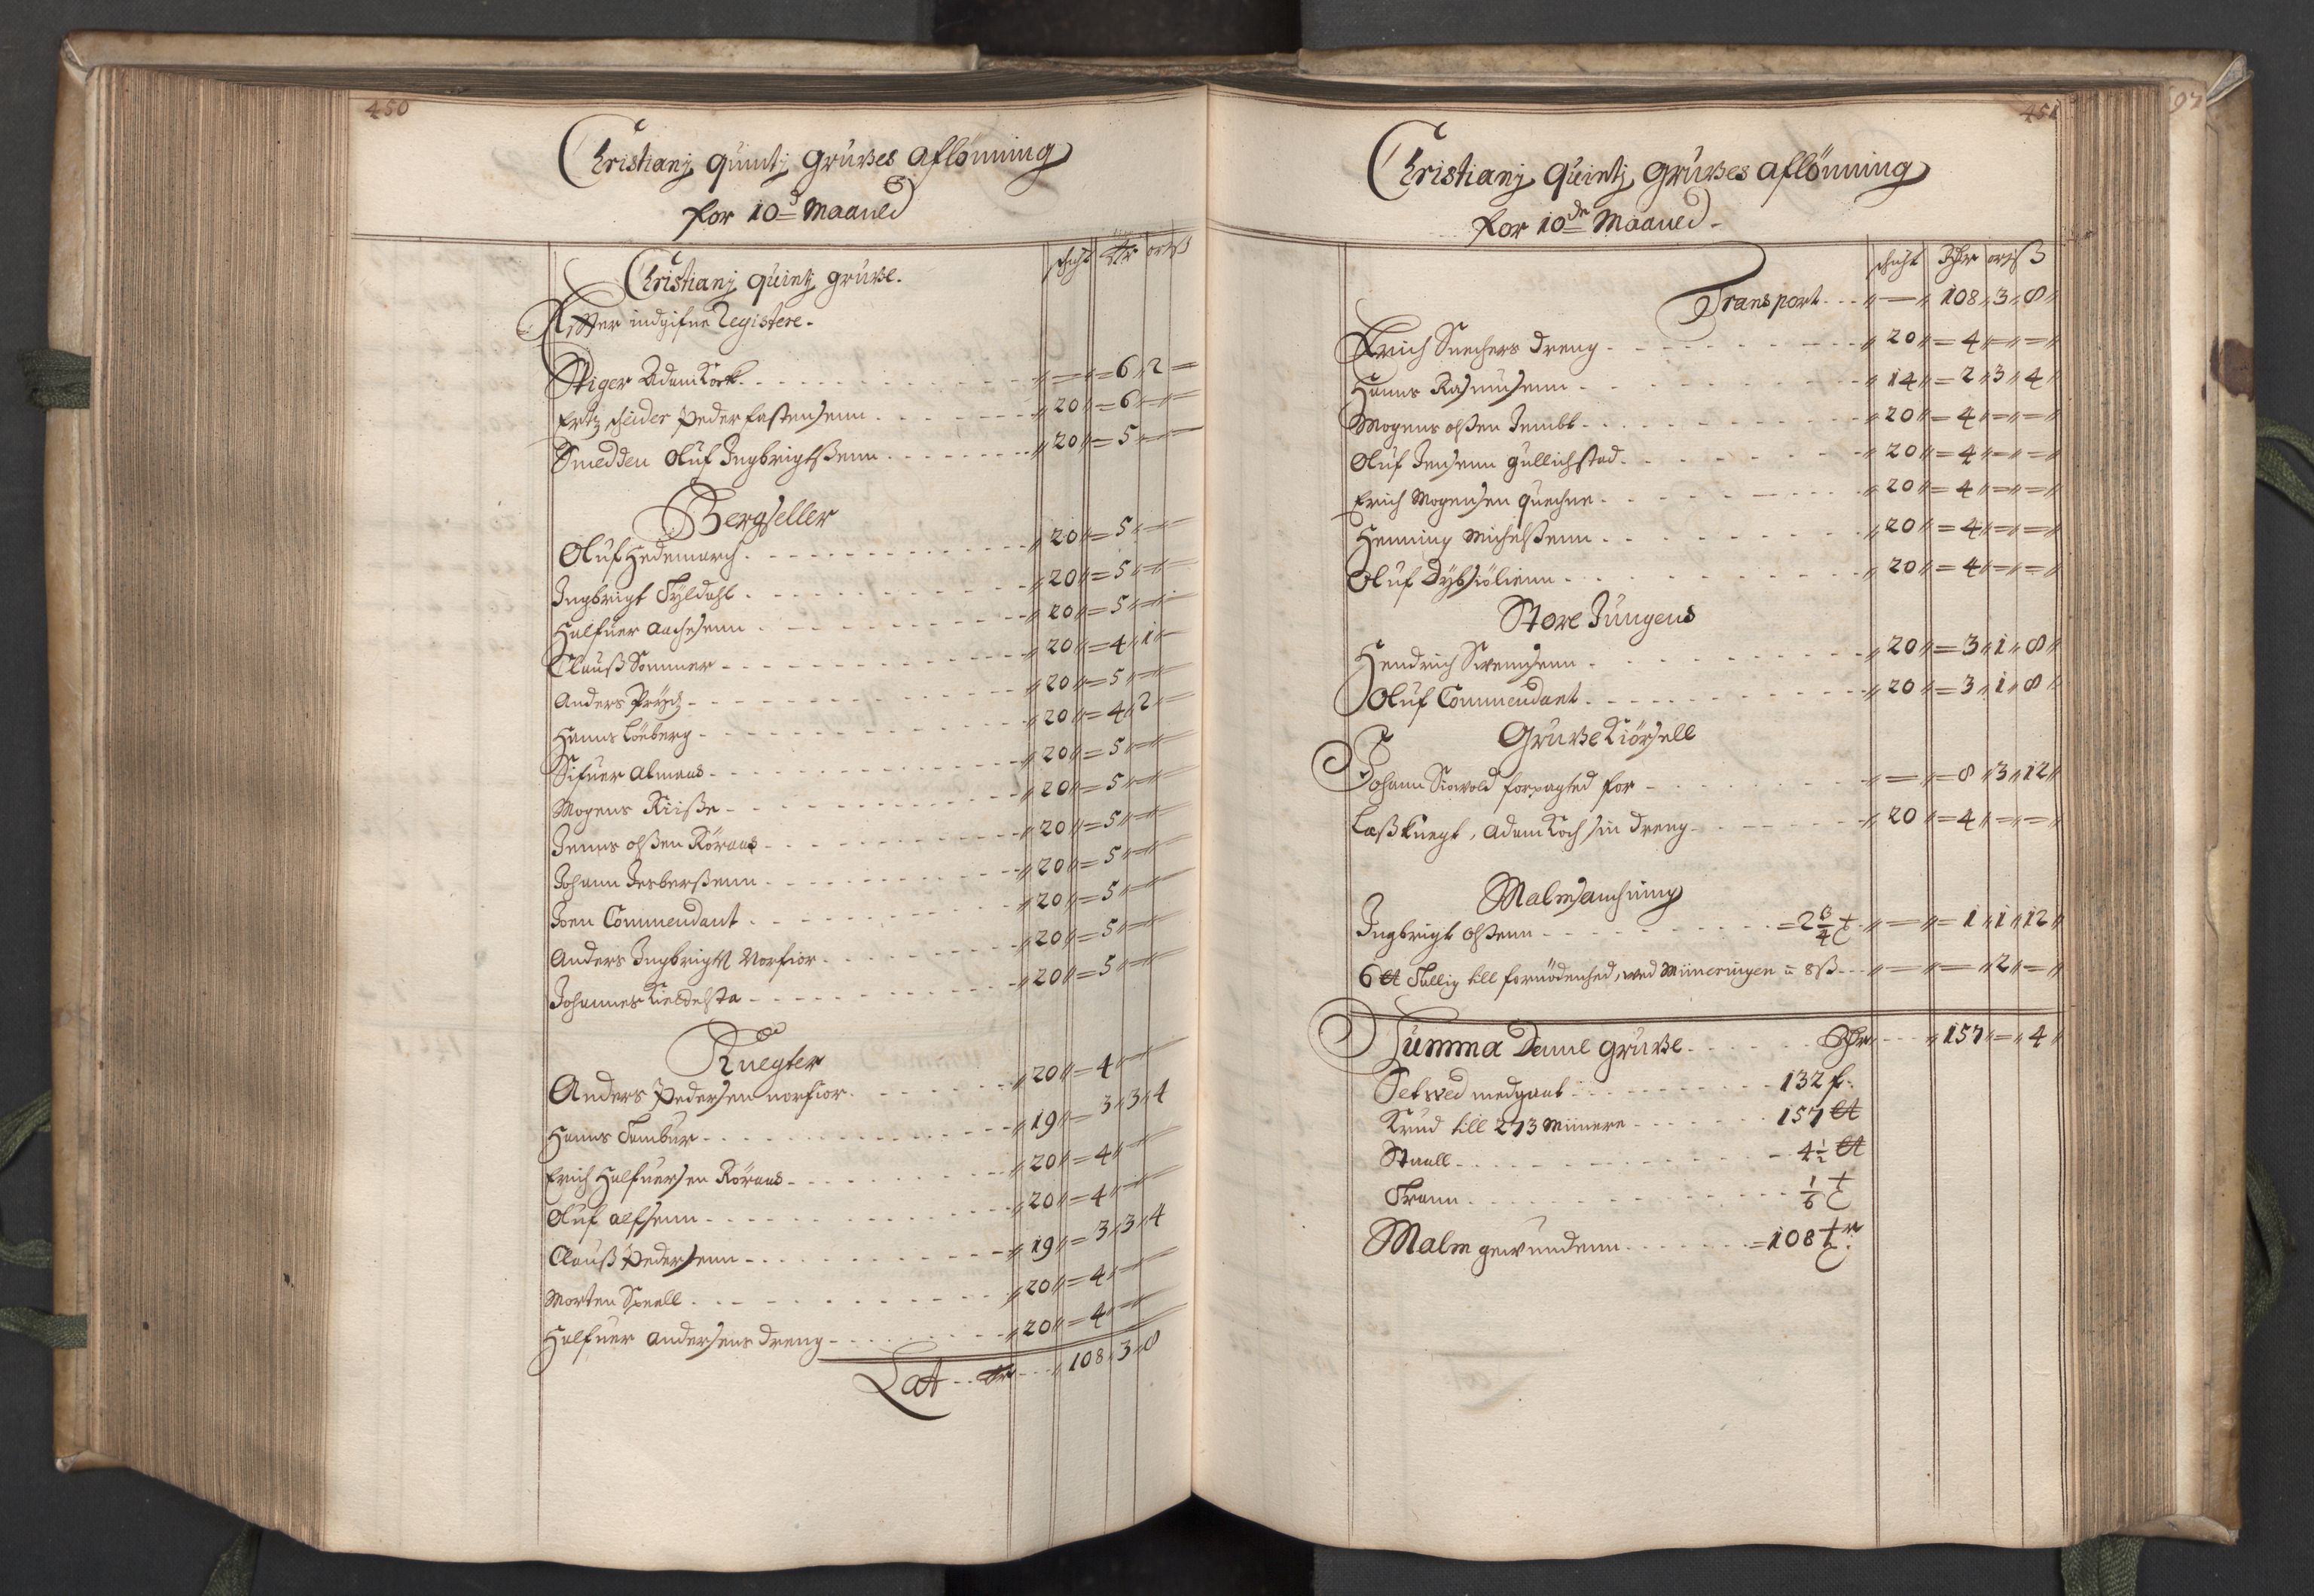 450
Christianj quintj gruβes aflönning
for 10d Maaned
schicht Rdr ort ß
Christianj quintj gruβe.
Effter indgifne Registere.
Stiger Adam Kock. = 6 2
Ertzscheider Peder fastensenn. 20 = 6
Smedden Oluf Ingbrigtßenn 20 = 5
Bergseller
Oluf Hedemarch. 20 = 5
Ingbrigt Tyldahl. 20 = 5
Halfuer Aachesenn. 20 = 5
Clauß Sommer 20 = 4 1
Anders Prÿtz 20 = 5
Hanns Löeberg 20 = 4 2
Sifuer Almaas 20 = 5
Mogens Riiße 20 = 5
Jenns olßen Röraas 20 = 5
Johann Jesberßenn 20 = 5
Joen Commendant 20 = 5
Anders Ingbrigts Norfior 20 = 5
Johannes Kieldelsta 20 = 5
Knegter
Anders Pedersen norfior. 20 = 4
Hanns Tambur 19 = 3 3 4
Erich Halfuersen Röraas 20 = 4
Oluf alfsenn 20 = 4
Clauß Pedersenn 19 = 3 3 4
Morten Snell. 20 = 4
Halfuer andersens dreng 20 = 4
Lat Rdr 108 3 8
451
Christianj Quintj gruβes aflönning
for 10de Maaned
schicht Rdr ort ß
Transport 108 3 8
Erich Snechers dreng 20 = 4
Hanns Rasmusenn 14 = 2 3 4
Mogens olßen Jembt 20 = 4
Oluf Jensenn gullichstad. 20 = 4
Erich Mogensen quechne 20 = 4
Henning Michelßenn 20 = 4
Oluf Dÿbsiölienn 20 = 4
Store Jungens
Hendrich Svensenn 20 = 3 1 8
Oluf Commendant 20 = 3 1 8
Gruβe Kiörsell
Johann Siovold forpagted for = 8 3 12
Laß knegt, Adam Koch sin dreng 20 = 4
Malmsauchning
Ingbrigt olßenn = 2 3/4 t = 1 1 12
6 ℔ Tallig till fornödenhed, ved Mineringen a 8ß 2
Summa Denne gruβe Rdr 157 = 4
Setved medgaat 132 f.
Krud till 273 Minere 157 ℔
Staall 4 1/2 ℔
Trann 1/6 t
Malm gewundenn = 108 tr